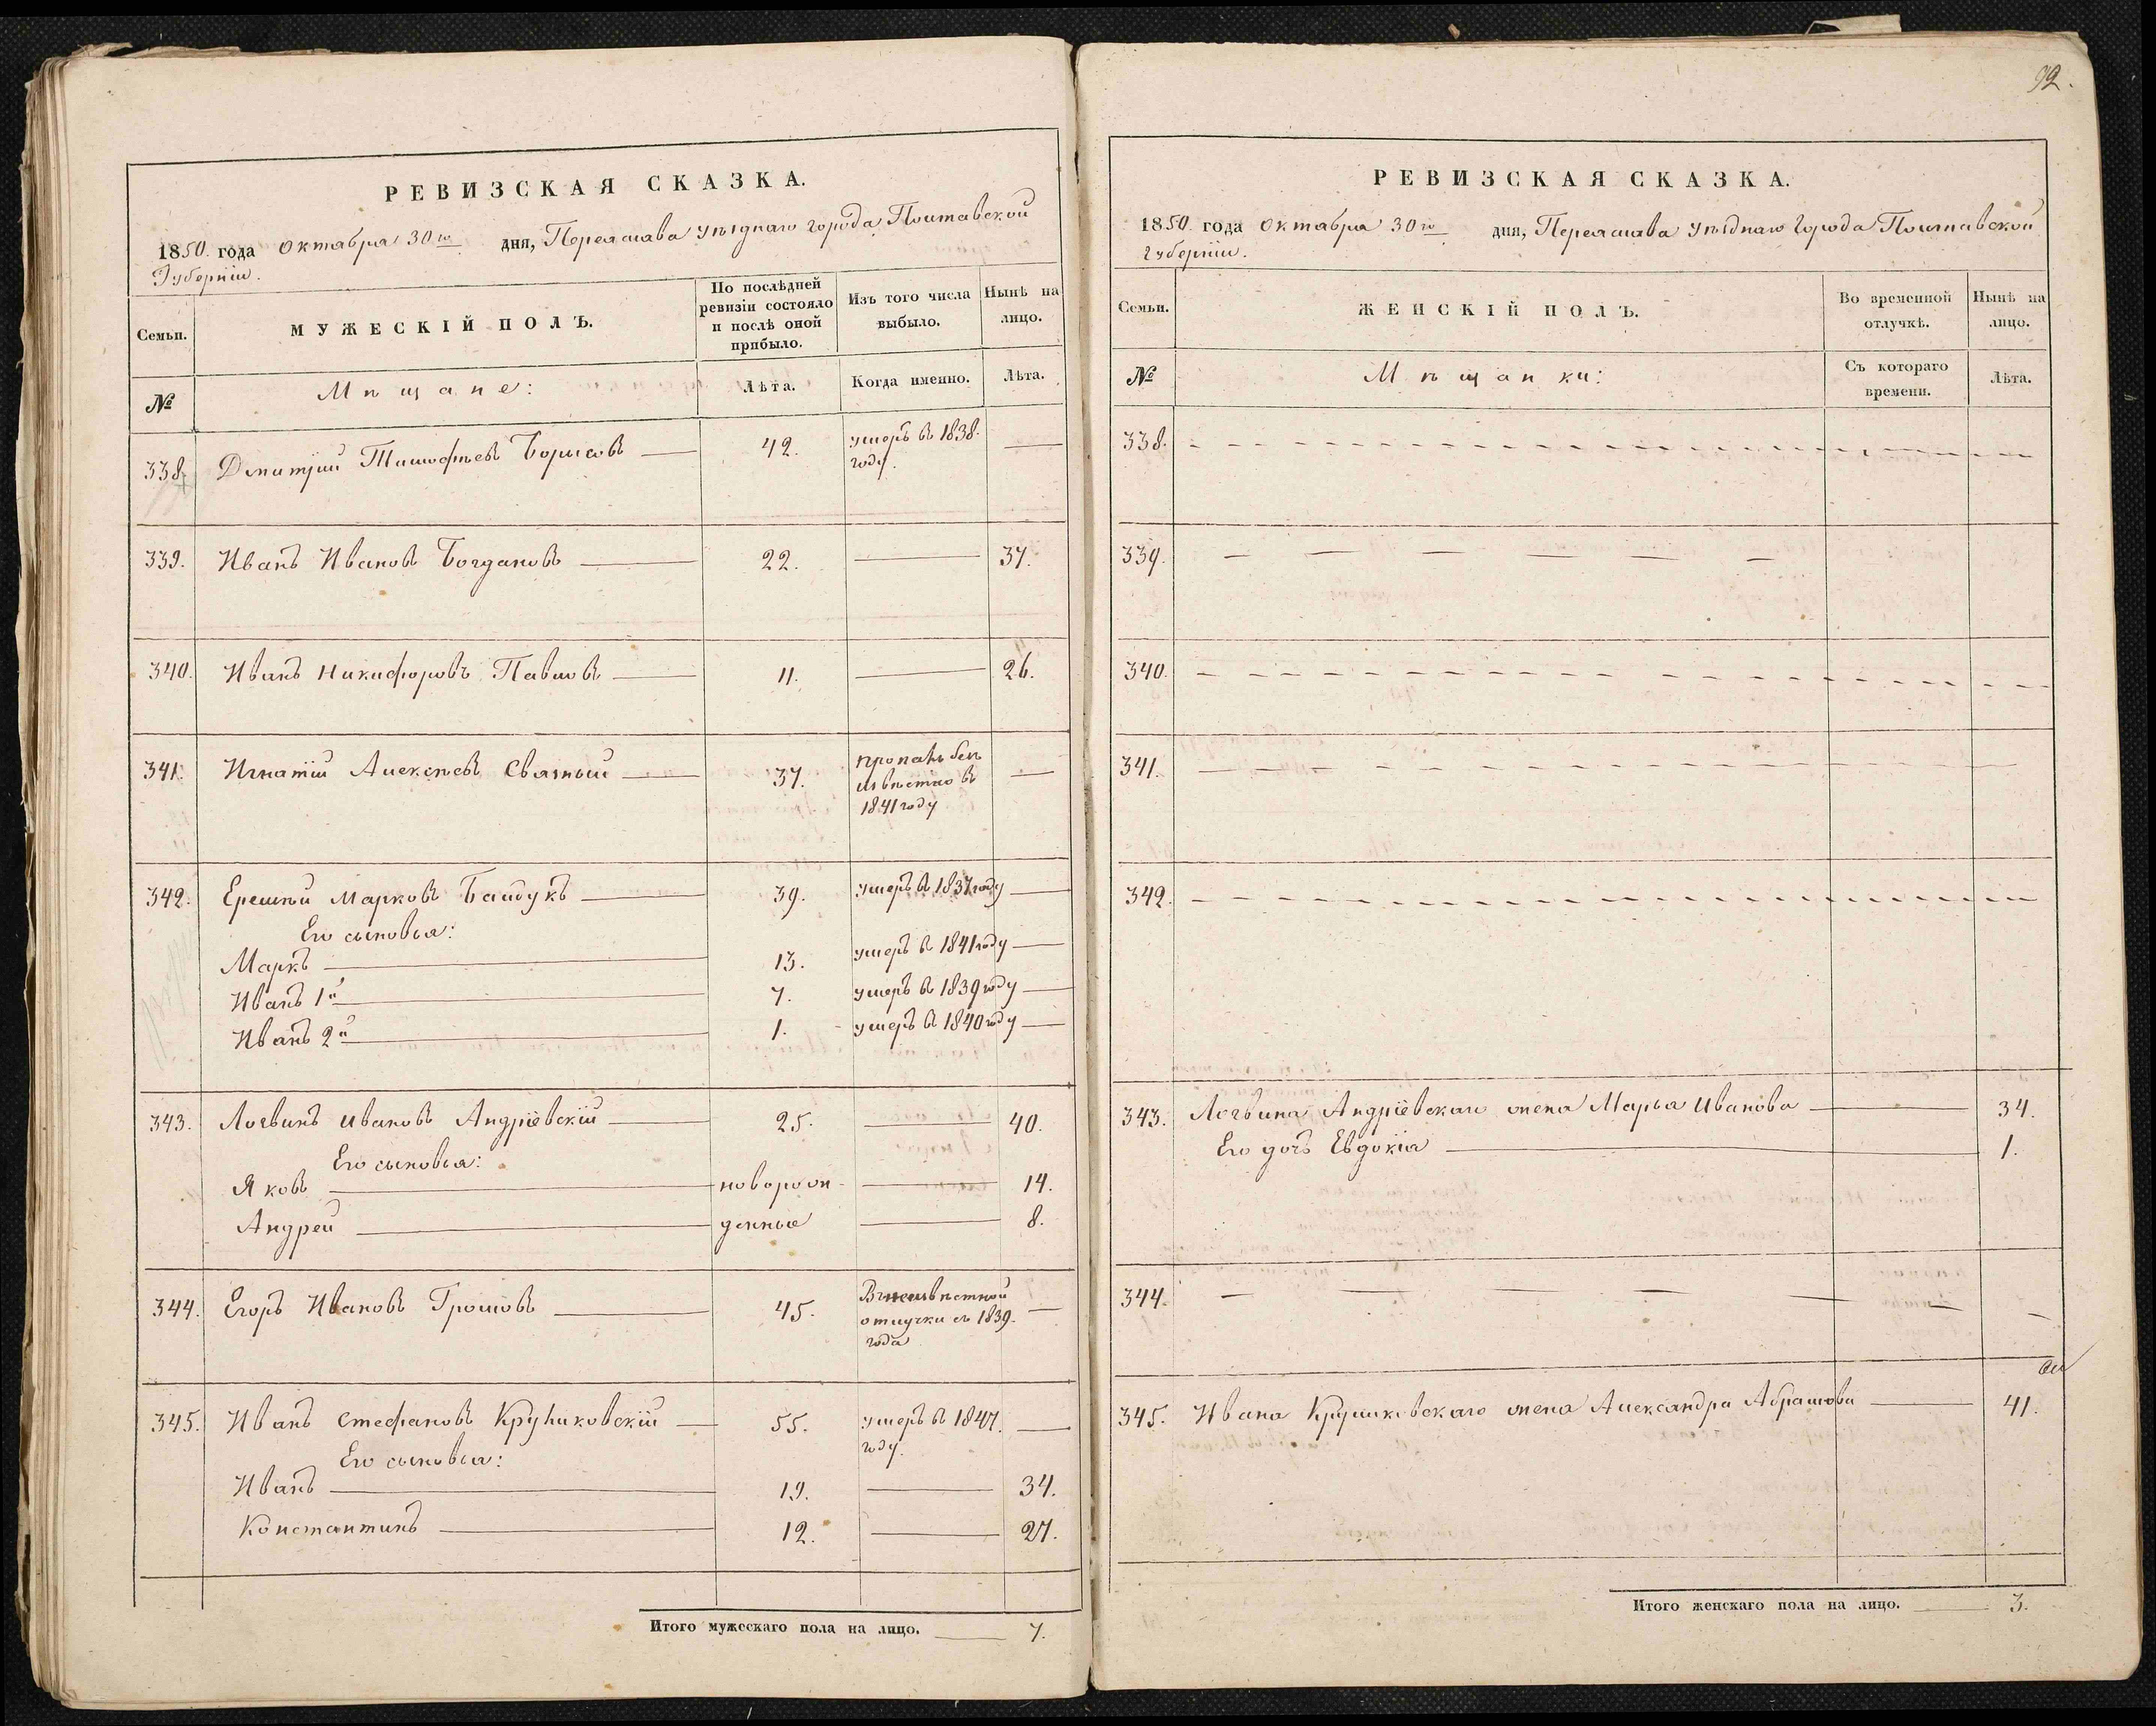 92.
РЕВИЗСКАЯ СКАЗКА.
1850. года Октября 30го дня, Переяслава уѣзднаго города Полтавской
Губерніи.
Семьи. МУЖЕСКІЙ ПОЛЪ. По послѣдней ревизіи состояло и послѣ оной прибыло. Изъ того числа выбыло. Нынѣ на лицо.
№ Мѣщане: Лѣта. Когда именно. Лѣта.
338. Дмитрій Тимофѣевъ Борисовъ 42. умеръ въ 1838.
году.
339. Иванъ Ивановъ Богдановъ 22. 37.
340. Иванъ Никифоровъ Павловъ 11. 26.
341. Игнатій Алексѣевъ Связный 37. пропалъ безъ
извѣстно въ
1841 году
342. Еремѣй Марковъ Байдукъ 39. умеръ въ 1837 году
Его сыновья:
Маркъ 13. умеръ въ 1841 году
Иванъ 1й 7. умеръ въ 1839 году
Иванъ 2й 1. умеръ въ 1840 году
343. Логвинъ Ивановъ Андріевскій 25. 40.
Его сыновья:
Яковъ новорож- 14.
Андрей денные 8.
344. Егоръ Ивановъ Громовъ 45. В неизвѣстной
отлучки съ 1839.
года
345. Иванъ Стефановъ Круликовскій 55. умеръ въ 1847.
году.
Его сыновья:
Иванъ 19. 34.
Константинъ 12. 27.
Итого мужескаго пола на лицо. 7.
РЕВИЗСКАЯ СКАЗКА.
1850. года Октября 30го дня, Переяслава уѣзднаго Города Полтавской
Губерніи.
Семьи. ЖЕНСКІЙ ПОЛЪ. Во временной отлучкѣ. Нынѣ на лицо.
№ Мѣщанки: Съ котораго времени. Лѣта.
338.
339.
340.
341.
342.
343. Логвина Андріевскаго жена Марья Иванова 34.
Его дочь Евдокія 1.
344.
345. Ивана Круликовскаго жена Александра Абрамова 41.
Итого женскаго пола на лицо. 3.